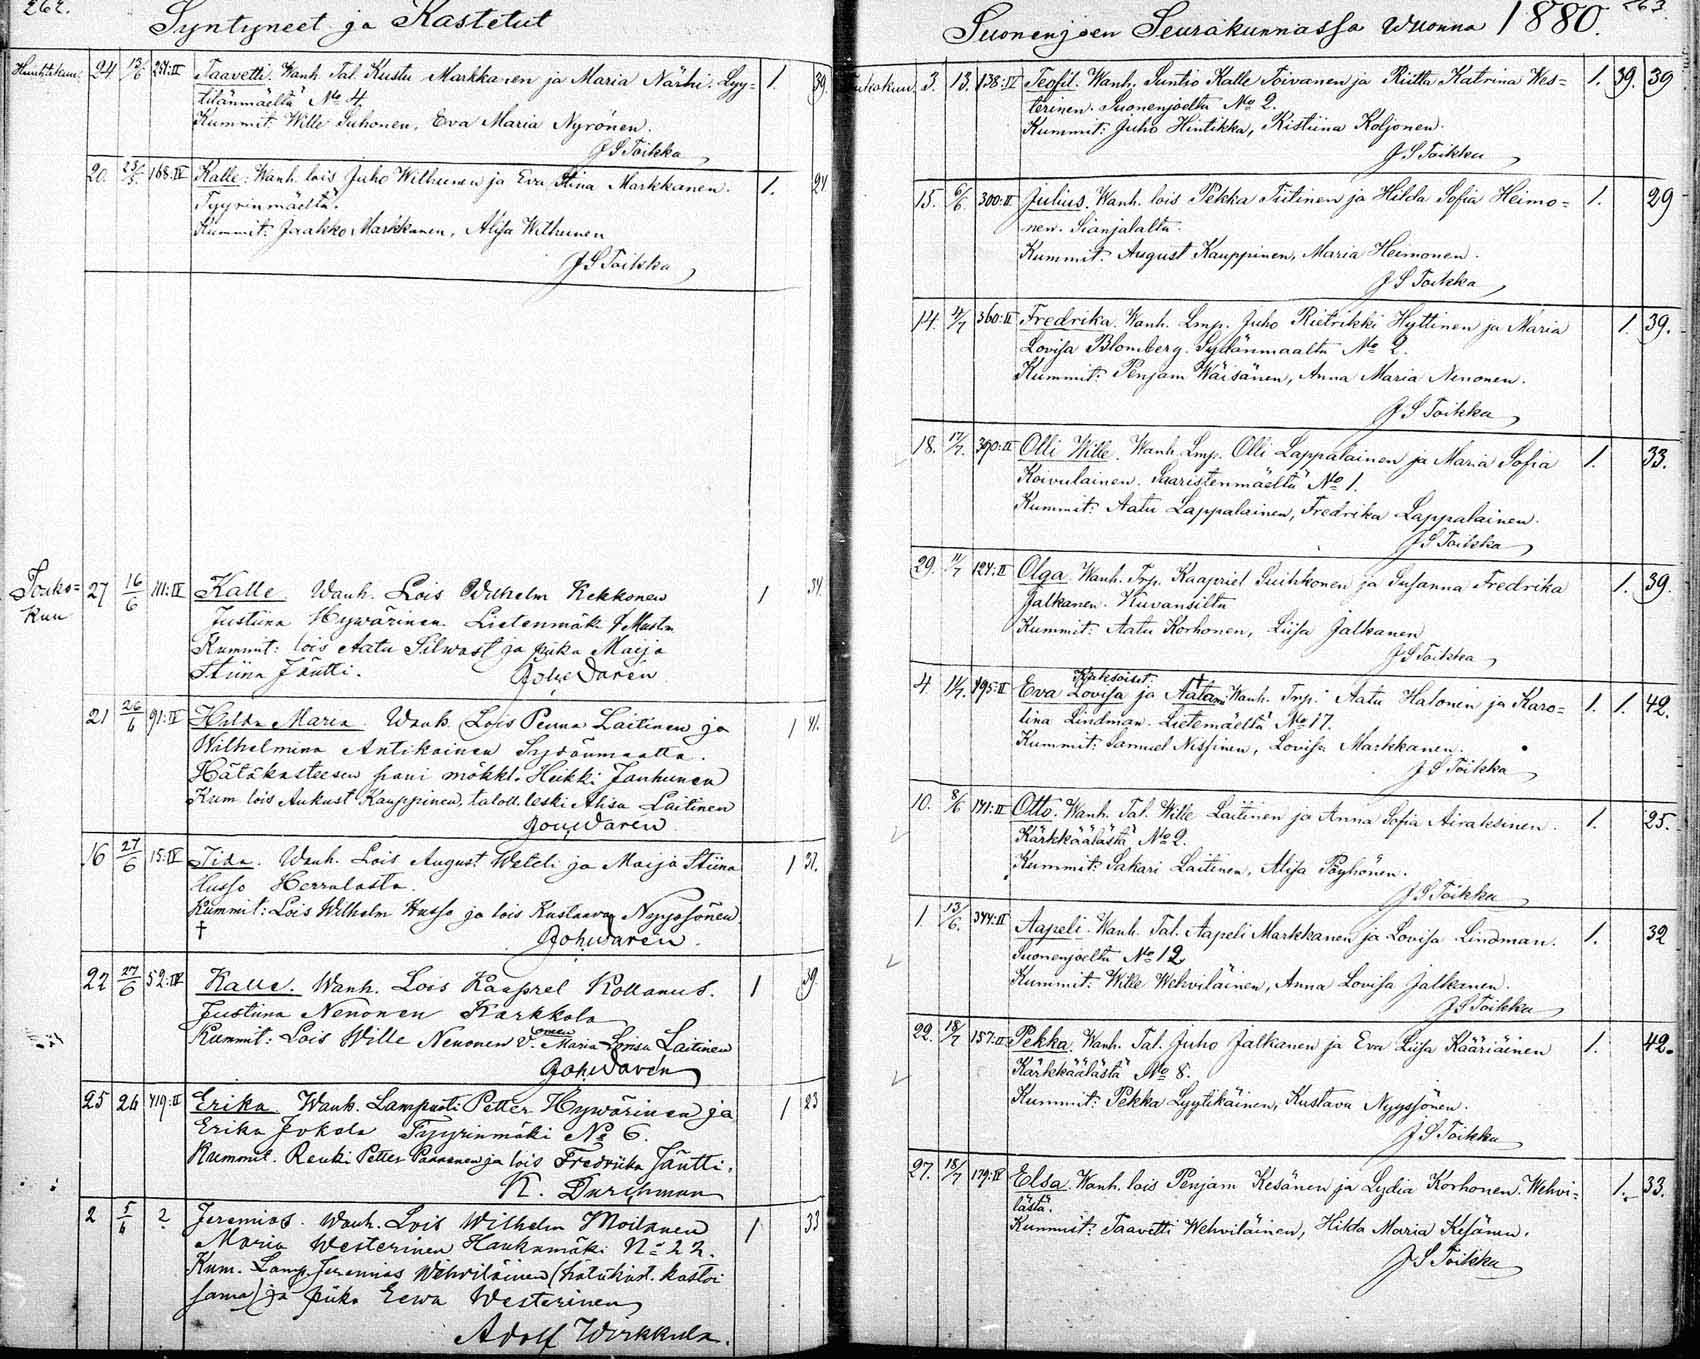 262.
Syntyneet ja Kastetut
Huhtikuu. 24 13/6 251:II Taavetti. Wanh. Tal. Kustu Markkanen ja Maria Närhi. Lyy= 1. 39.
tilänmäeltä No 4.
Kummit: Wille Suhonen, Eva Maria Nyrönen.
J S Toikka
20. 168:IV Kalle. Wanh. lois Juho Wilhunen ja Eva Stina Markkanen. 1. 24
Tyyrinmäeltä.
Kummit: Jaakko Markkanen, Alisa Wilhunen
J S Toikka
Touko=
kuu
27 16/6 111:IV Kalle. Wanh. Lois Wilhelm Kekkonen 1 34.
Justiina Hywärinen. Lietenmäk.
Kummit: lois Aatu Silwast ja piika Maija
Stiina Jäntti.
Joh. Waren
21 26/6 91:IV Hilda Maria. Wanh. Lois Penna Laitinen ja 1 41.
Wilhelmina Antikainen Sydänmaalta.
Hätäkasteesen pani mökkl. Heikki Janhunen
Kum lois Aukust Kauppinen, taloll. leski Alisa Laitinen
Joh. Waren
16 27/6 15:IV Iida. Wanh. Lois August Weteli ja Maija Stiina 1 31.
Husso Herralasta.
Kummit: Lois Wilhelm Husso ja lois Kustaava Nyyssönen
†
Joh. Waren.
22 27/6 52:IV Kalle. Wanh. Lois Kaaprel Kollanus. 1 39.
Justiina Nenonen Karkkola
Kummit: Lois Wille Nenonen V. Maria Lovisa Laitinen
Joh. Waren
25 26 419:II Erika. Wanh. Lampuoti Petter Hywärinen ja 1 23
Erika Jokela Tyyrinmäki No 6.
Kummit. Renki Petter Paananen ja lois Fredrika Jäntti.
K. Durchman
2 5/6 ? Jeremias. Wanh. Lois Wilhelm Moilanen 1 33
Maria Westerinen Haukamäki No 22.
Kum. Lamp. Jeremias Wehviläinen (hätäkast. kastoi
sama) ja piika Eewa Westerinen
Adolf Wirkkula.
263.
Suonenjoen Seurakunnassa wuonna 1880.
Toukokuu. 3. 13. 138:IV Teofil. Wanh. Suntio Kalle Toivanen ja Riitta Katrina Wes= 1. 39. 39
terinen. Suonenjoelta No 2.
Kummit: Juho Hintikka, Kistiina Koljonen.
J S Toikka
15. 6/6. 300:II Julius. Wanh. lois Pekka Tiitinen ja Hilda Sofia Heimo= 1. 29
nen. Sianjalalta.
Kummit. August Kauppinen, Maria Heimonen.
J S Toikka
14. 4/7 360:II Fredrika. Wanh. Lmp. Juho Rietrikki Hyttinen ja Maria 1. 39.
Lovisa Blomberg. Sydänmaalta No 2.
Kummit: Penjam Wäisänen, Anna Maria Nenonen.
J S Toikka
18. 17/7. 390:II Olli Wille. Wanh. Lmp. Olli Lappalainen ja Maria Sofia 1. 33.
Koivulainen. Saaristenmäeltä No 1.
Kummit: Aatu Lappalainen, Fredrika Lappalainen.
J S Toikka
29. 11/7 124:II Olga. Wanh. Trp. Kaapriel Suihkonen ja Susanna Fredrika 1. 39.
Jalkanen. Kuvansilta
Kummit: Aatu Korhonen, Liisa Jalkanen
J S Toikka
Kaksoiset. †
4 195:II Eva Lovisa ja Aatami Wanh. Trp. Aatu Halonen ja Karo= 1. 1. 42.
lina Lindman. Lietemäeltä No 17.
Kummit: Samuel Nissinen, Lovisa Markkanen.
J S Toikka
10. 8/6 171:II Otto. Wanh. Tal. Wille Laitinen ja Anna Sofia Airaksinen. 1. 25.
Kärkkäälästä No 2.
Kummit: Sakari Laitinen, Alisa Pöyhönen.
J S Toikka
1. 13/6. 344:II Aapeli. Wanh. Tal. Aapeli Markkanen ja Lovisa Lindman. 1. 32
Suonenjoelta No 12
Kummit: Wille Wehviläinen, Anna Lovisa Jalkanen.
J S Toikka
22. 18/7 157:II Pekka. Wanh. Tal. Juho Jalkanen ja Eva Liisa Kääriäinen 1. 42.
Kärkkäälästä No 8.
Kummit: Pekka Lyytikäinen, Kustava Nyyssönen.
J S Toikka
27. 18/7 179:IV Elsa. Wanh. lois Penjam Kesänen ja Lydia Korhonen. Wehvi= 1. 33.
lästä.
Kummit: Taavetti Wehviläinen, Hilda Maria Kesänen.
J S Toikka